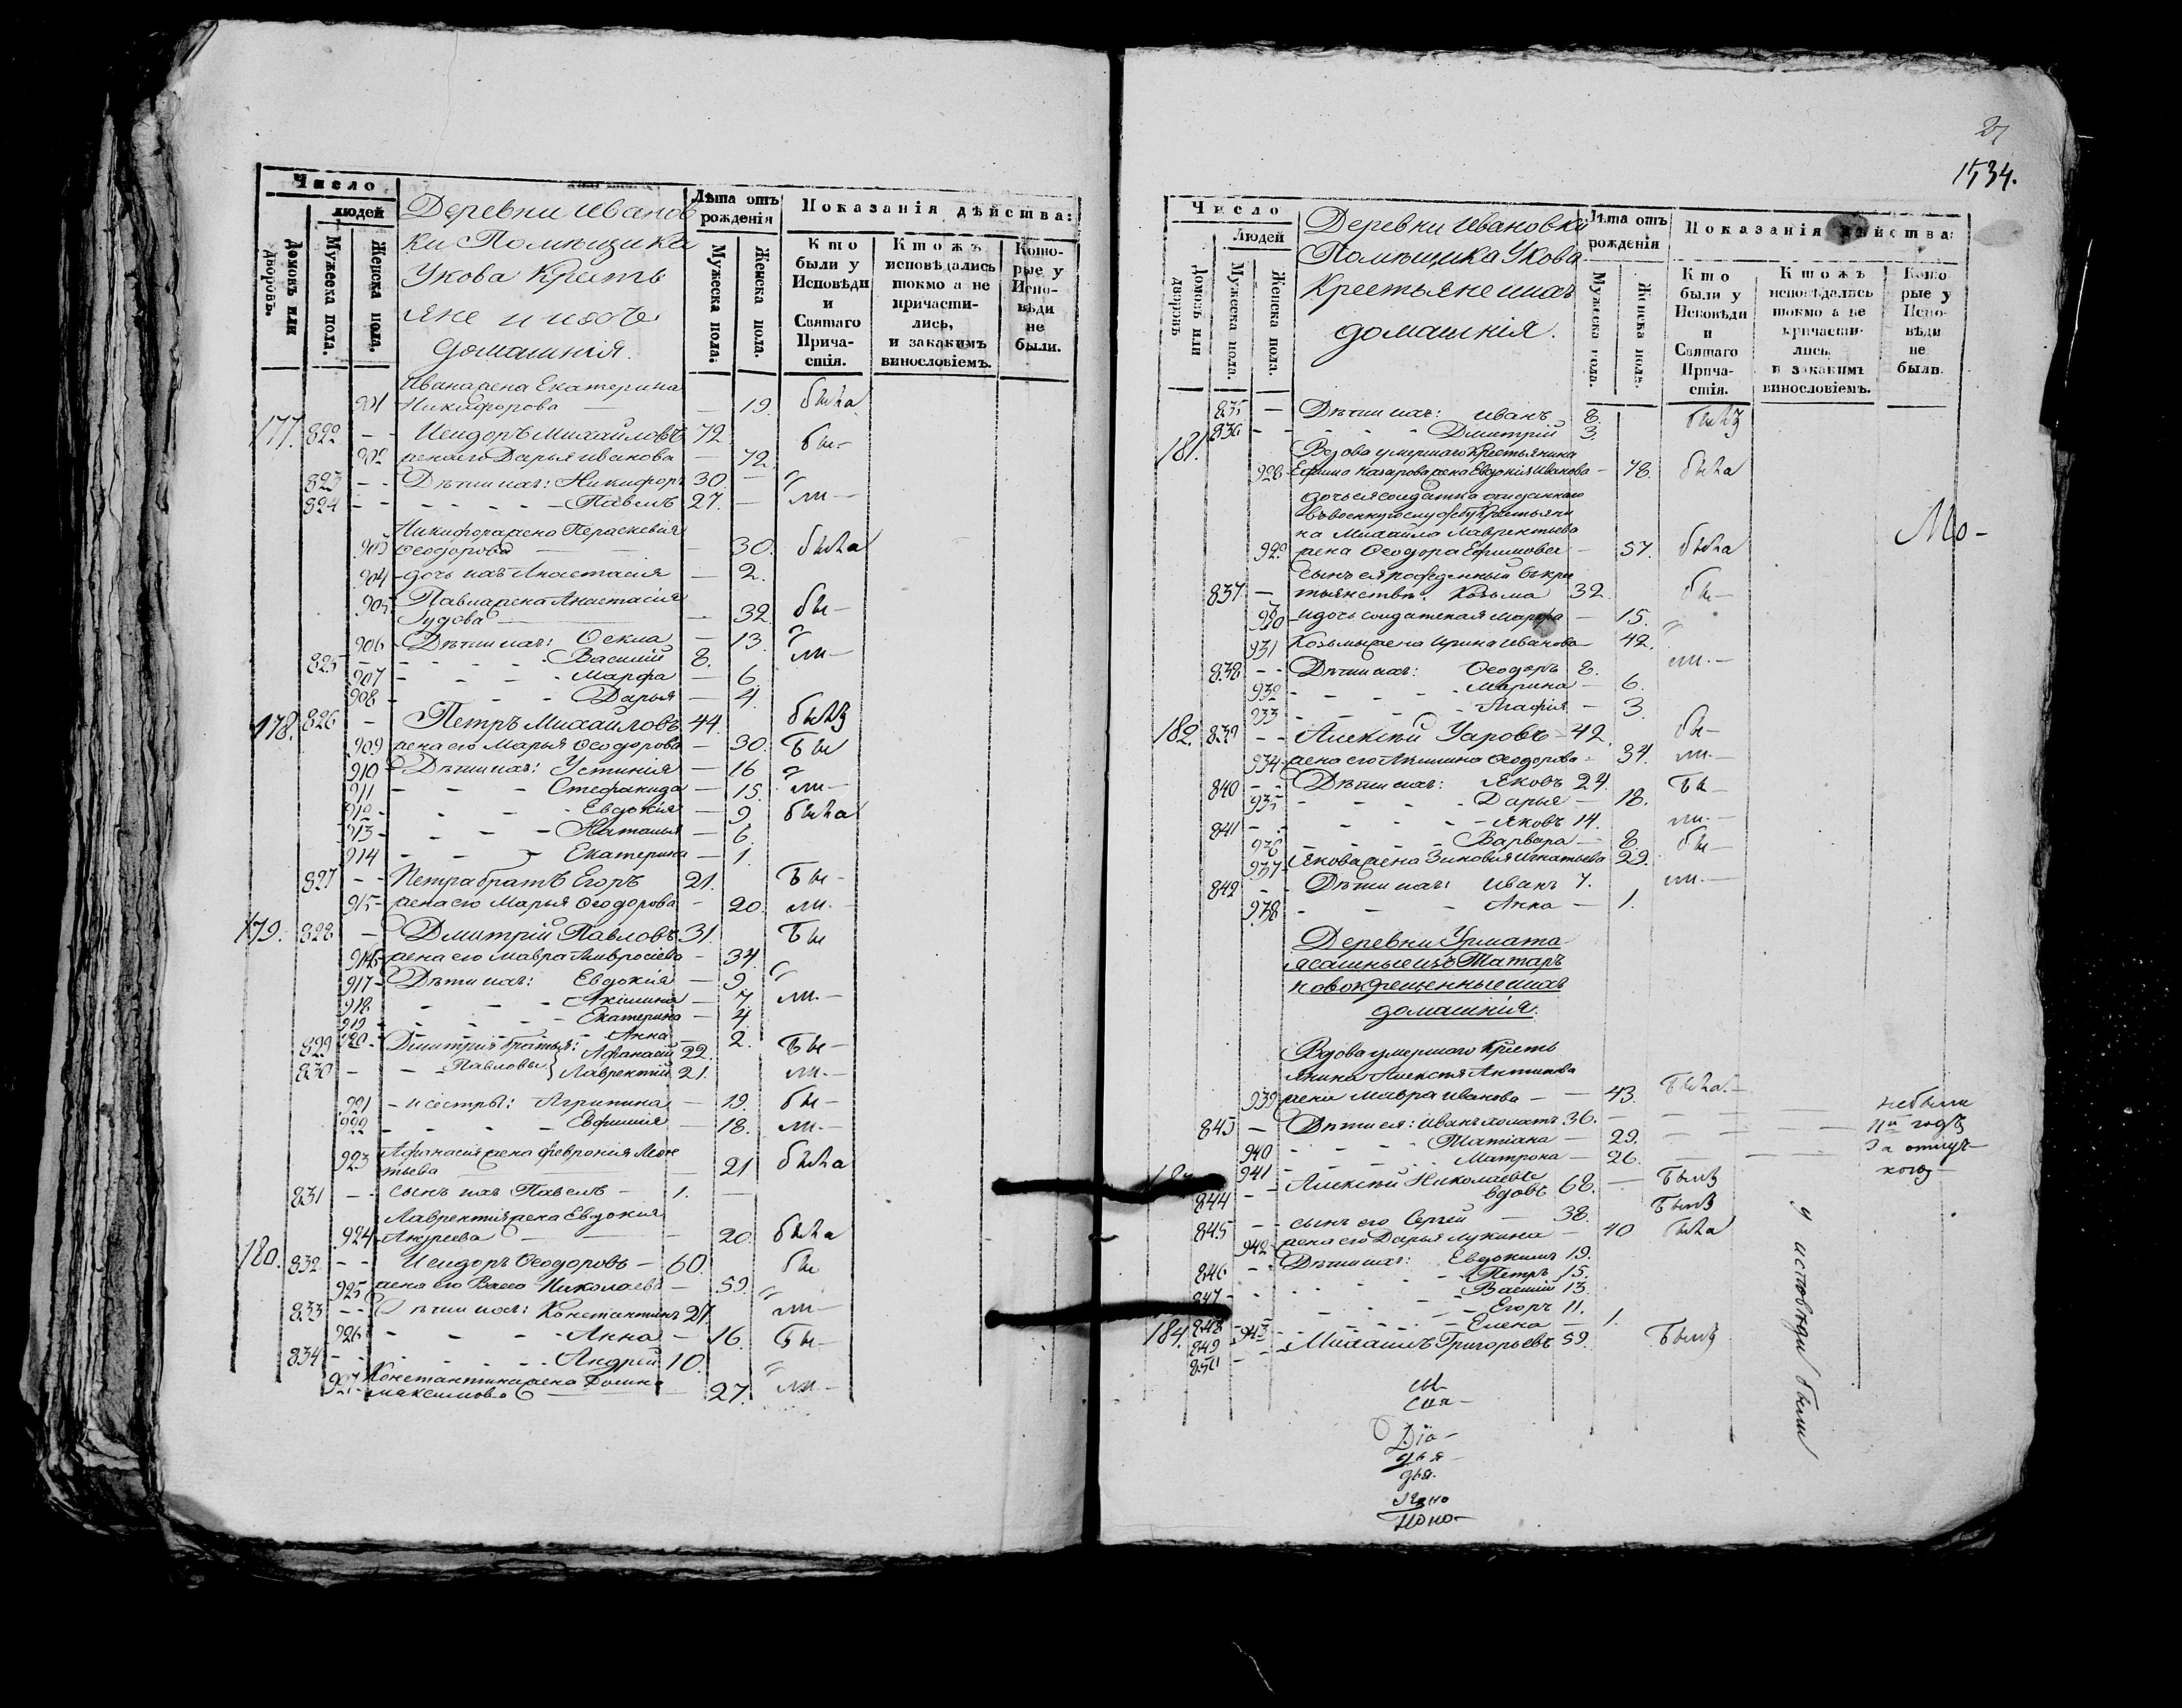 Число
людей
Домовъ или дворовъ.
Мужеска пола.
Женска пола.
Деревни Иванов
ки Помѣщика
Укова Кресть
яне и ихъ
домашнія.
Лѣта отъ рожденія
Мужеска пола.
Женска пола.
Показанія дѣйства:
Кто были у Исповѣди и Святаго Прича-стія.
Ктожъ исповѣдались токмо а не причасти-лись, и закакимъ винословіемъ.
Кото-рые у Испо-вѣди не были.
Ивана жена Екатерина
901 Никифорова — — 19. была
177. 822 - - Исидоръ Михайловъ 72. бы-
902 жена его Дарья Иванова — 72.
823 - - Дѣти ихъ: Никифоръ 30. —
824 - - - - - Павелъ 27. — ли-
Никифора жена Пераскевія
903 Ѳеодорова — — 30. была
904 дочь ихъ Анастасія — 2.
905 Павла жена Анастасія
— 32. бы-
906 Дѣти ихъ: Ѳекла — 13.
825 - - - - Василій 8. ли-
907 - - - - Марфа — 6.
908 - - - Дарья — 4.
178. 826 - Петръ Михайловъ 44. былъ
909 жена его Марья Ѳеодорова — 30. бы
910 - Дѣти ихъ: Устинія — 16
911 - - - Стефанида — 15. ли-
912 - - - Евдокія — 9 была
913 - - - Наталья — 6.
914 - - - Екатерина — 1.
827 - - Петра братъ Егоръ 21. бы-
915 - жена его Марья Ѳеодорова - 20. ли-
179. 828 - Дмитрій Павловъ 31. бы
916 - жена его Мавра Амвросіева - 34.
917 - Дѣти ихъ: Евдокія — 9.
918 - - - Акилина — 7. ли-
919 - - - Екатерина — 4.
920 - - - Анна — 2.
829 Дмитрія братья: Афанасій 22. бы-
830 - - - Павловы Лаврентій 21. ли-
921 - и сестры: Агрипина — 19. бы-
922 - - - Евфимія — 18. ли-
923 Афанасія жена Феврония Леон
тьева — 21 была
831 - - сынъ ихъ Павелъ - 1. —
Лаврентія жена Евдокия
924 Андреева — — 20. была
180. 832 - - Исидоръ Ѳеодоровъ - 60. бы
925 жена его Васса Николаева — 59.
833 - - Дѣти ихъ: Константинъ 27. ли-
926 - - - - Анна - 16. бы-
834 - - - - - Андрей 10.
927 Константина жена
Максимова — — 27. ли-
27
1534.
Число
Людей
Домовъ или дворовъ
Мужеска пола.
Женска пола.
Деревни Ивановки
Помѣщика Укова
Крестьяне и ихъ
домашнія.
Лѣта отъ рожденія
Мужеска пола.
Женска пола.
Показанія дѣйства:
Кто были у Исповѣди и Святаго Прича-стія.
Ктожъ исповѣдались токмо а не причасти-лись, и закакимъ винословіемъ.
Кото-рые у Испо-вѣди не были.
835 — Дѣти ихъ: Иванъ 8. былъ
836 - - - - Дмитрій 3.
181. Вдова умершаго Крестьянина
928 Ефима Назарова жена Евдокія Иванова - 78. была
дочь ея солдатка отданнаго
въ военную службу Крестьяни
на Михайла Лаврентьева
929 жена Ѳеодора Ефимова — 57. была
Мо-
сынъ ея рожденный въ кре
837 — стьянствѣ: Козьма 32. бы-
930 и дочь солдатская Марфа - 15.
931 Козьмы жена Ирина Иванова 42.
838 - - Дѣти ихъ: Ѳеодоръ 8. ли.-
932 - - - - Марина — 6.
933 - - - - Агафія — 3.
182. 839 - - Алексѣй Уаровъ - 42. бы-
934 жена его Акилина Ѳеодорова - 34. ли.-
840 - - Дѣти ихъ: Яковъ 24. бы-
935 - - - - Дарья — 18.
841 - - - - Яковъ 14. ли.-
936 - - - Варвара — 8. бы-
937 Якова жена Зиновия Игнатьева 29.
842 - - Дѣти ихъ: Иванъ 7. ли.-
938 - - - Анна — 1.
Деревни Урмата
ясашные изъ Татаръ
новокрещенные и ихъ
домашнія.
Вдова умершаго Кресть
янина Алексѣя Антипова
939 жена Мавра Иванова — 43. была.-
843 - Дѣти ея: Иванъ холостъ 36. небыли
940 - - - Татіана — 29.
941 - - - Матрона — 26.
за отлуч-
кою
844 - - Алексѣй Николаевъ
вдовъ 68. — былъ
845 - - сынъ его Сергей — 38. былъ
942 жена его Дарья Лукина — 40 была
846 - - Дѣти ихъ: Евдокимъ 19.
847 - - - - Петръ 15.
- - - - Василій 13.
848 - - - - Егоръ 11.
849 943 - - - Елена — 1.
184. 850 - - Михаилъ Григорьевъ 59. былъ
у исповѣди были
Дїа-